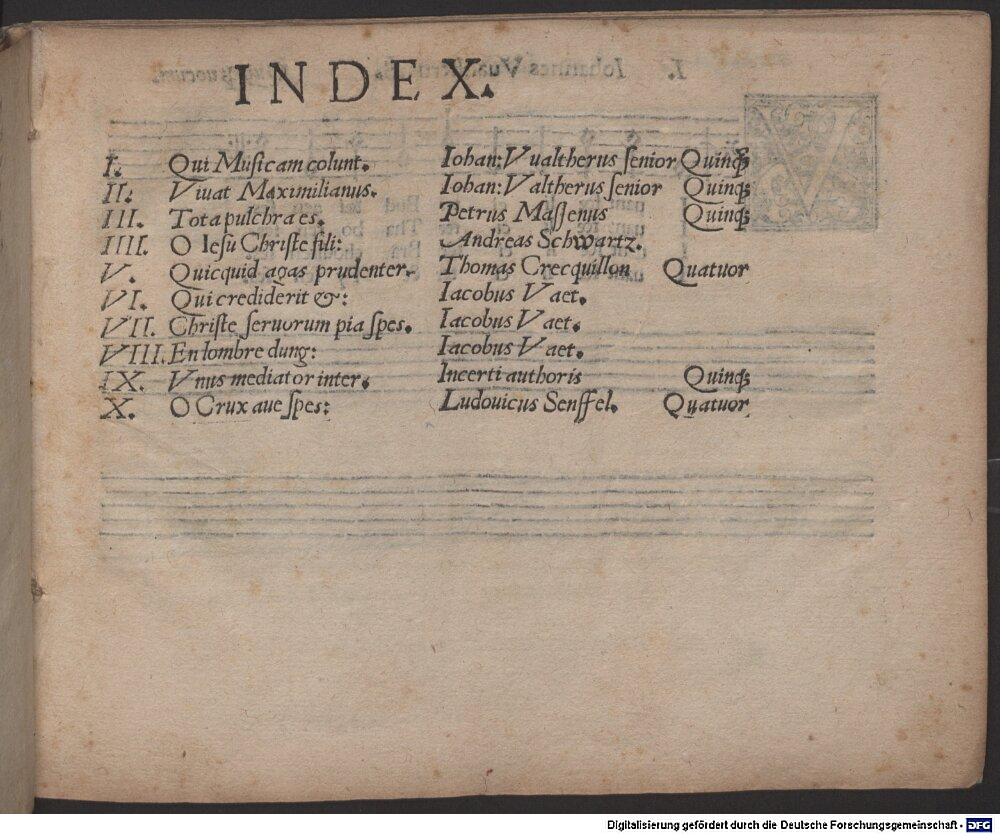 INDEX.
I. Qui Musicam colunt. Iohan: Vualtherus senior Quinq;
II: Viuat Maximilianus. Iohan: Valtherus senior Quinq;
III. Tota pulchra es. Petrus Massenus Quinq;
IIII. O Iesu Christe fili: Andreas Schwartz.
V. Quicquid agas prudenter. Thomas Crecquillon Quatuor
VI. Qui crediderit &: Iacobus Vaet.
VII. Christe seruorum pia spes. Iacobus Vaet.
VIII. En lombre dung: Iacobus Vaet.
IX. Vnus mediator inter. Incerti authoris Quinq;
X. O Crux aue spes: Ludouicus Senffel. Quatuor
Digitalisierung gefördert durch die Deutsche Forschungsgemeinschaft - DFG